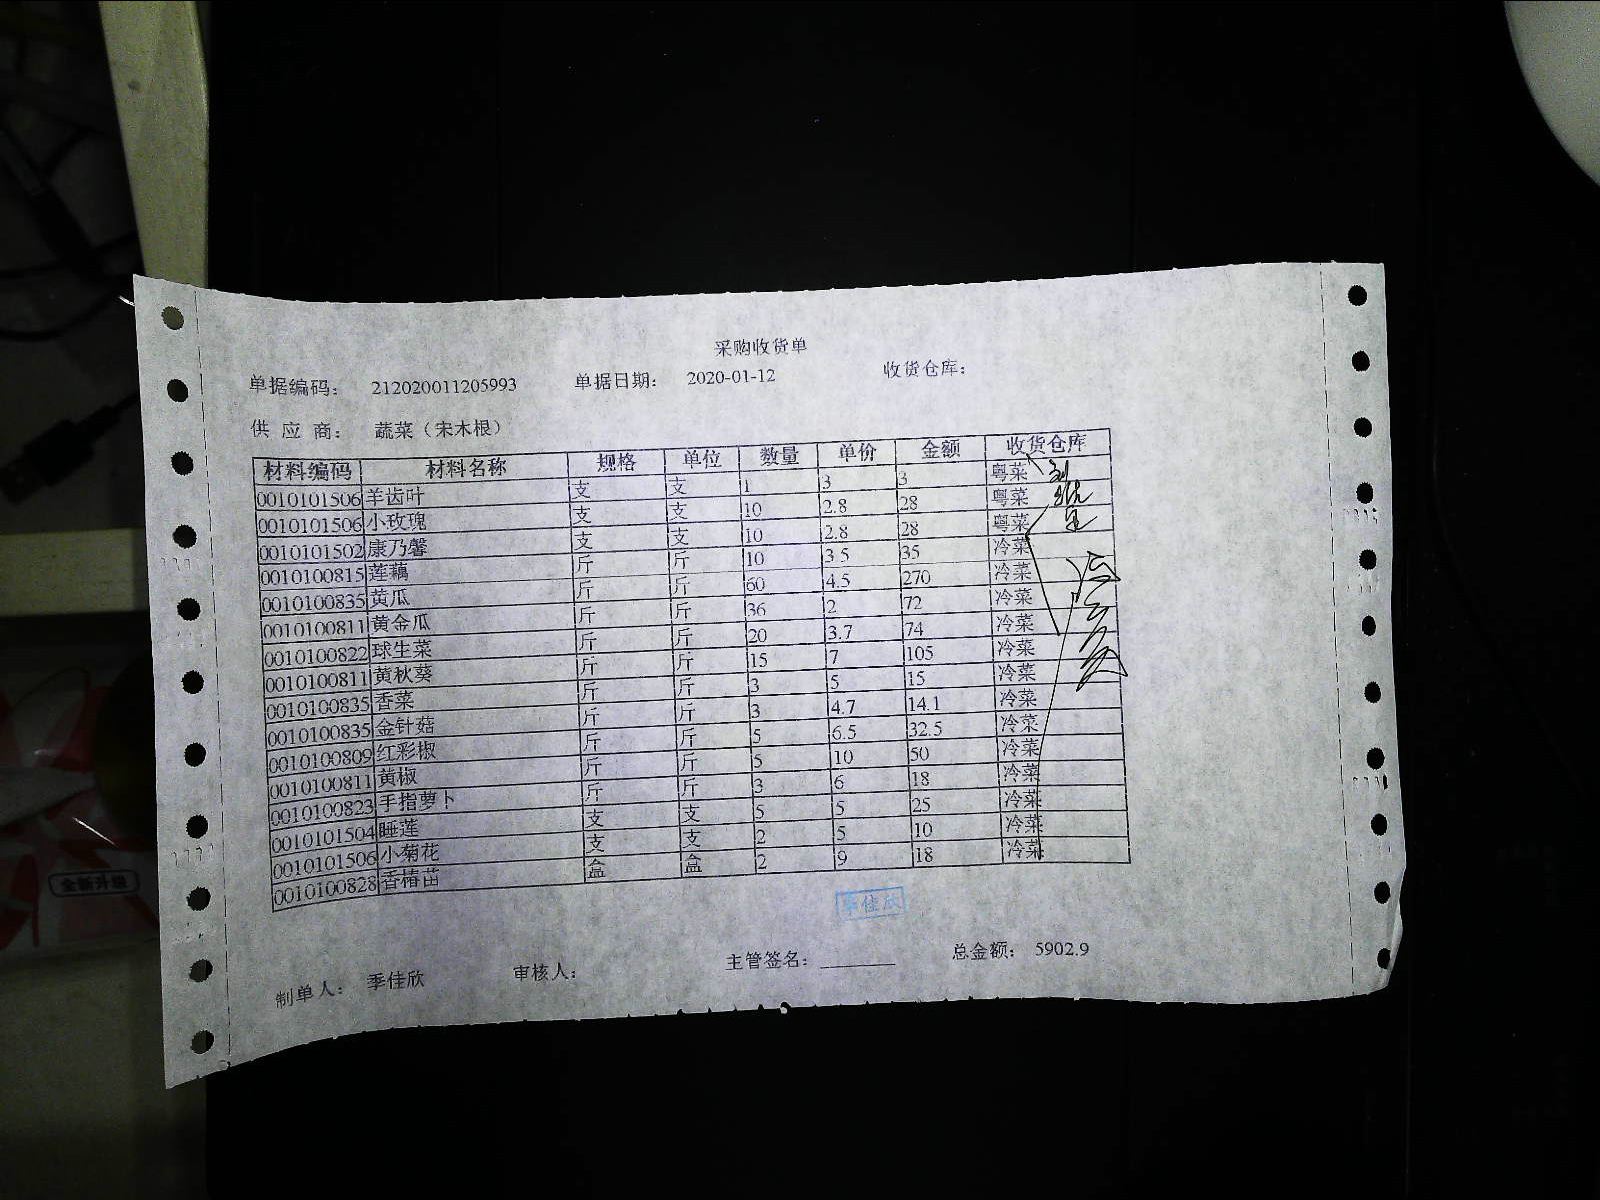 采购收货单
单据编码： 212020011205993 单据日期： 2020-01-12 收货仓库：
供 应 商： 蔬菜（宋木根）
材料编码 材料名称 规格 单位 数量 单价 金额 收货仓库
0010101506 羊齿叶 支 支 1 3 3 粤菜
0010101506 小玫瑰 支 支 10 2.8 28 粤菜
0010101502 康乃馨 支 支 10 2.8 28 粤菜
0010100815 莲藕 斤 斤 10 3.5 35 冷菜
0010100835 黄瓜 斤 斤 60 4.5 270 冷菜
0010100811 黄金瓜 斤 斤 36 2 72 冷菜
0010100822 球生菜 斤 斤 20 3.7 74 冷菜
0010100811 黄秋葵 斤 斤 15 7 105 冷菜
0010100835 香菜 斤 斤 3 5 15 冷菜
0010100835 金针菇 斤 斤 3 4.7 14.1 冷菜
0010100809 红彩椒 斤 斤 5 6.5 32.5 冷菜
0010100811 黄椒 斤 斤 5 10 50 冷菜
0010100823 手指萝卜 斤 斤 3 6 18 冷菜
0010101504 睡莲 支 支 5 5 25 冷菜
0010101506 小菊花 支 支 2 5 10 冷菜
0010100828 香椿苗 盒 盒 2 9 18 冷菜
季佳欣
制单人： 季佳欣 审核人： 主管签名： 总金额： 5902.9
全新升级